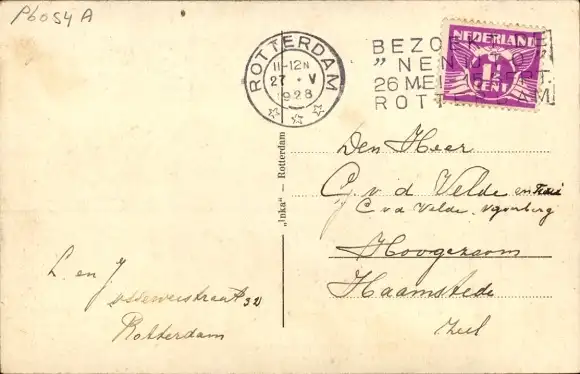 P6054A
ROTTERDAM
11-12N
27 V
1928
BEZOE
"NENIJTO"
26 MEI
ROTTERDAM
NEDERLAND
1½
CENT
„Inka" — Rotterdam
Den Heer
C. v d Velde en
C v d Velde
Hoogezoom
Haamstede
Zeel
L. en J
straat 32
Rotterdam